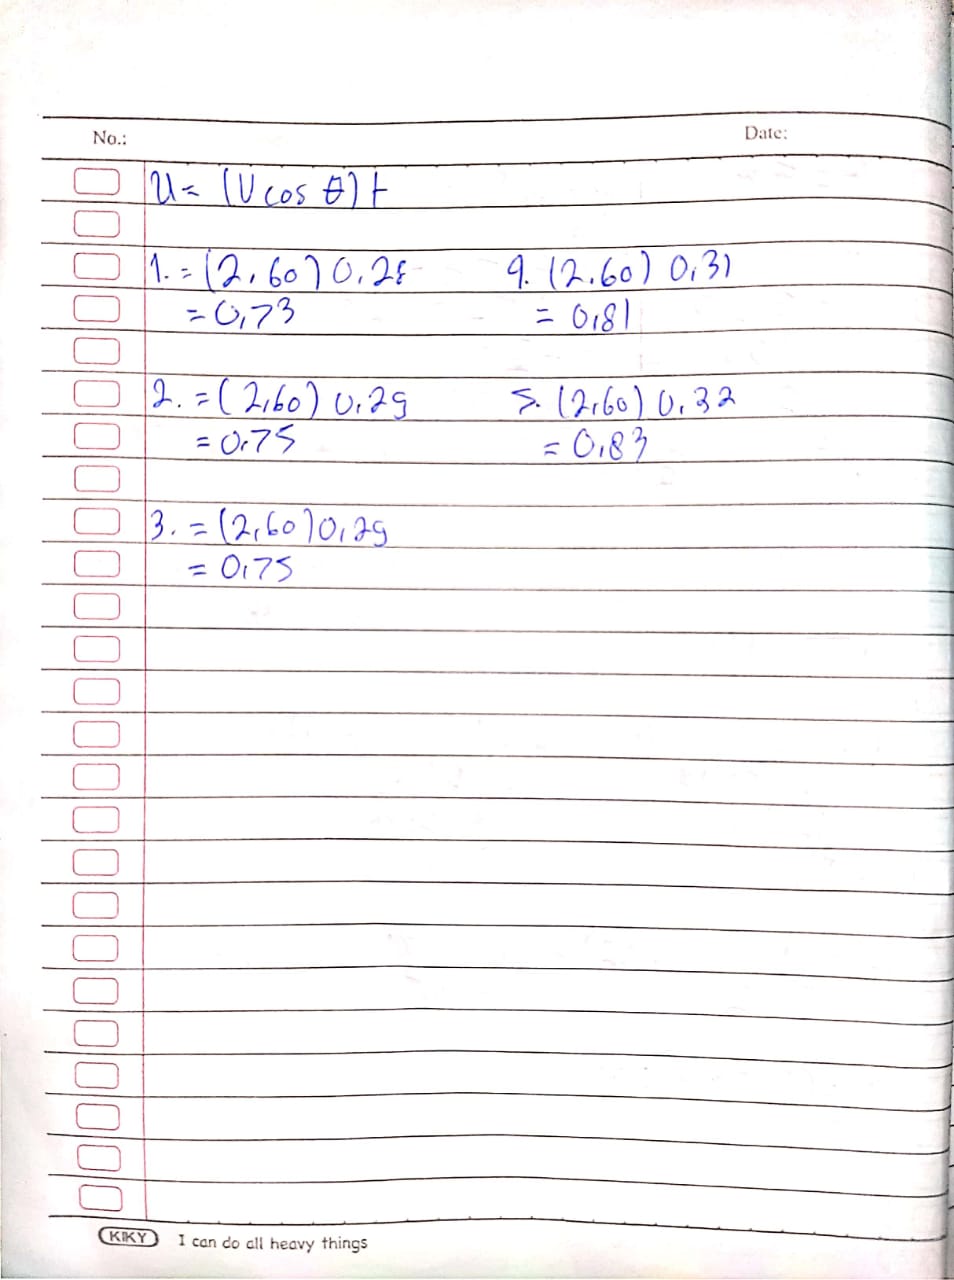 No.:
Date:
U = (V cos θ) t
1. = (2,60) 0,28
= 0,73
2. = (2,60) 0,29
= 0,75
3. = (2,60) 0,29
= 0,75
4. (2.60) 0,31
= 0,81
5. (2,60) 0,32
= 0,83
KIKY I can do all heavy things